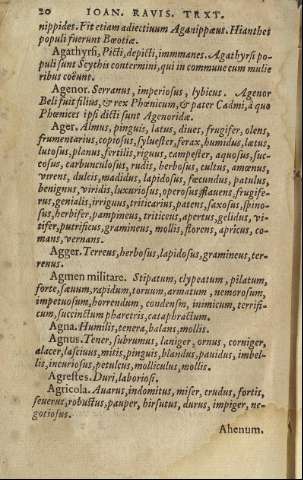 20 IOAN. RAVIS. TEXT.
nippides. Fit etiam adiectiuum Aganippæus. Hianthes
populi fuerunt Bœotiæ.
Agathyrsi, Picti, depicti, immanes. Agathyrsi po-
puli sunt Scythis contermini, qui in commune cum mulie
ribus coëunt.
Agenor. Serranus, imperiosus, lybicus. Agenor
Beli fuit filius, & rex Phœnicum, & pater Cadmi, à quo
Phœnices ipsi dicti sunt Agenoridæ.
Ager. Almus, pinguis, latus, diues, frugifer, olens,
frumentarius, copiosus, syluester, ferax, humidus, lætus,
lutosus, planus, fertilis, riguus, campester, aquosus, suc-
cosus, carbunculosus, rudis, herbosus, cultus, amœnus,
virens, dulcis, madidus, lapidosus, fœcundus, patulus,
benignus, viridis, luxuriosus, operosus, flauens, frugife-
rus, genialis, irriguus, triticarius, patens, saxosus, spino-
sus, herbifer, pampineus, triticeus, apertus, gelidus, vi-
tifer, putrificus, gramineus, mollis, florens, apricus, co-
mans, vernans.
Agger. Terreus, herbosus, lapidosus, gramineus, ter-
renus.
Agmen militare. Stipatum, clypeatum, pilatum,
forte, sæuum, rapidum, toruum, armatum, nemorosum,
impetuosum, horrendum, condensum, inimicum, terrifi-
cum, succinctum pharetris, cataphractum.
Agna. Humilis, tenera, balans, mollis.
Agnus. Tener, subrumus, laniger, ornus, corniger,
alacer, lasciuus, mitis, pinguis, blandus, pauidus, imbel-
lis, incuriosus, petulcus, molliculus, mollis.
Agrestes. Duri, laboriosi.
Agricola. Auarus, indomitus, miser, crudus, fortis,
seuerus, robustus, pauper, hirsutus, durus, impiger, ne-
gotiosus.
Ahenum.